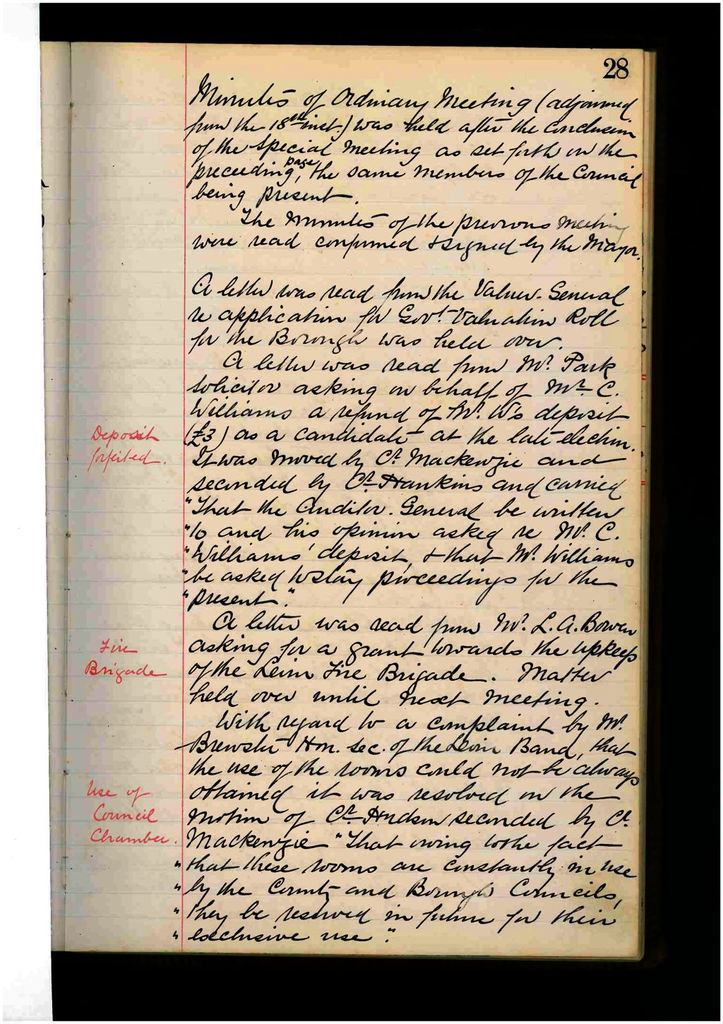 28
Minutes of Ordinary Meeting (adjourned
from the 18th inst.) was held after the conclusion
of the Special Meeting as set forth on the
preceeding page, the same members of the Council
being present.
The Minutes of the previous meeting
were read confirmed & signed by the Mayor.
A letter was read from the Valuer-General
re application for Govt Valuation Roll
for the Borough was held over.
A letter was read from Mr. Park
Solicitor asking on behalf of Mr. C.
Williams a refund of Mr. W's deposit
Deposit
forfeited.
(£3) as a candidate at the late election.
It was moved by Cr. Mackenzie and
seconded by Cr. Hankins and carried
"That the Auditor General be written
"to and his opinion asked re Mr. C.
"Williams' deposit, & that Mr. Williams
"be asked to stay proceedings for the
"present."
A letter was read from Mr. L. A. Bowen
Fire
Brigade
asking for a grant towards the upkeep
of the Levin Fire Brigade. Matter
held over until next meeting.
With regard to a complaint by Mr.
Brewster Hon. Sec. of the Levin Band, that
the use of the rooms could not be always
Use of
Council
Chamber.
obtained it was resolved on the
motion of Cr. Hudson seconded by Cr.
Mackenzie "That owing to the fact
"that these rooms are constantly in use
"by the County and Borough Councils,
"they be reserved in future for their
"exclusive use."